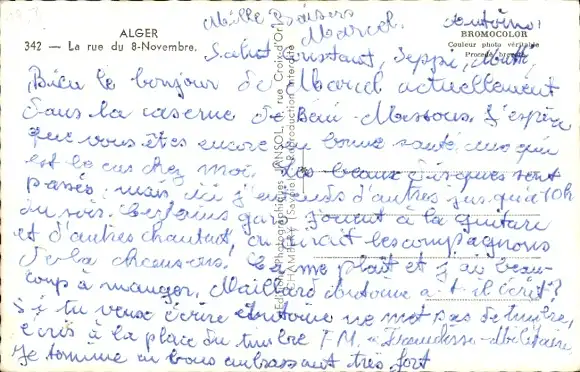 ALGER
342 — La rue du 8-Novembre.
BROMOCOLOR
Couleur photo véritable
Mille Baisers
Marcel.
Antoine,
Salut Constant, Seppi,
Bien le bonjour de Marcel actuellement
dans la caserne de Beni-Messous. J'espère
que vous êtes encore en bonne santé, ce qui
est le cas chez moi. Les beaux disques sont
passés, mais ici j'entends d'autres jusqu'à 10h
du soir. Certains gars jouent à la guitare
et d'autres chantent, on dirait les compagnons
de la chanson. Ça me plaît et j'ai beau-
coup à manger. Maillard Antoine a-t-il écrit?
Si tu veux écrire Antoine ne met pas de timbre,
écris à la place du timbre F.M. = Franchise-Militaire
Je termine en vous embrassant très fort
Photographiques JANSOL, rue Croix-d'Or
CHAMBÉRY (Savoie) Reproduction interdite